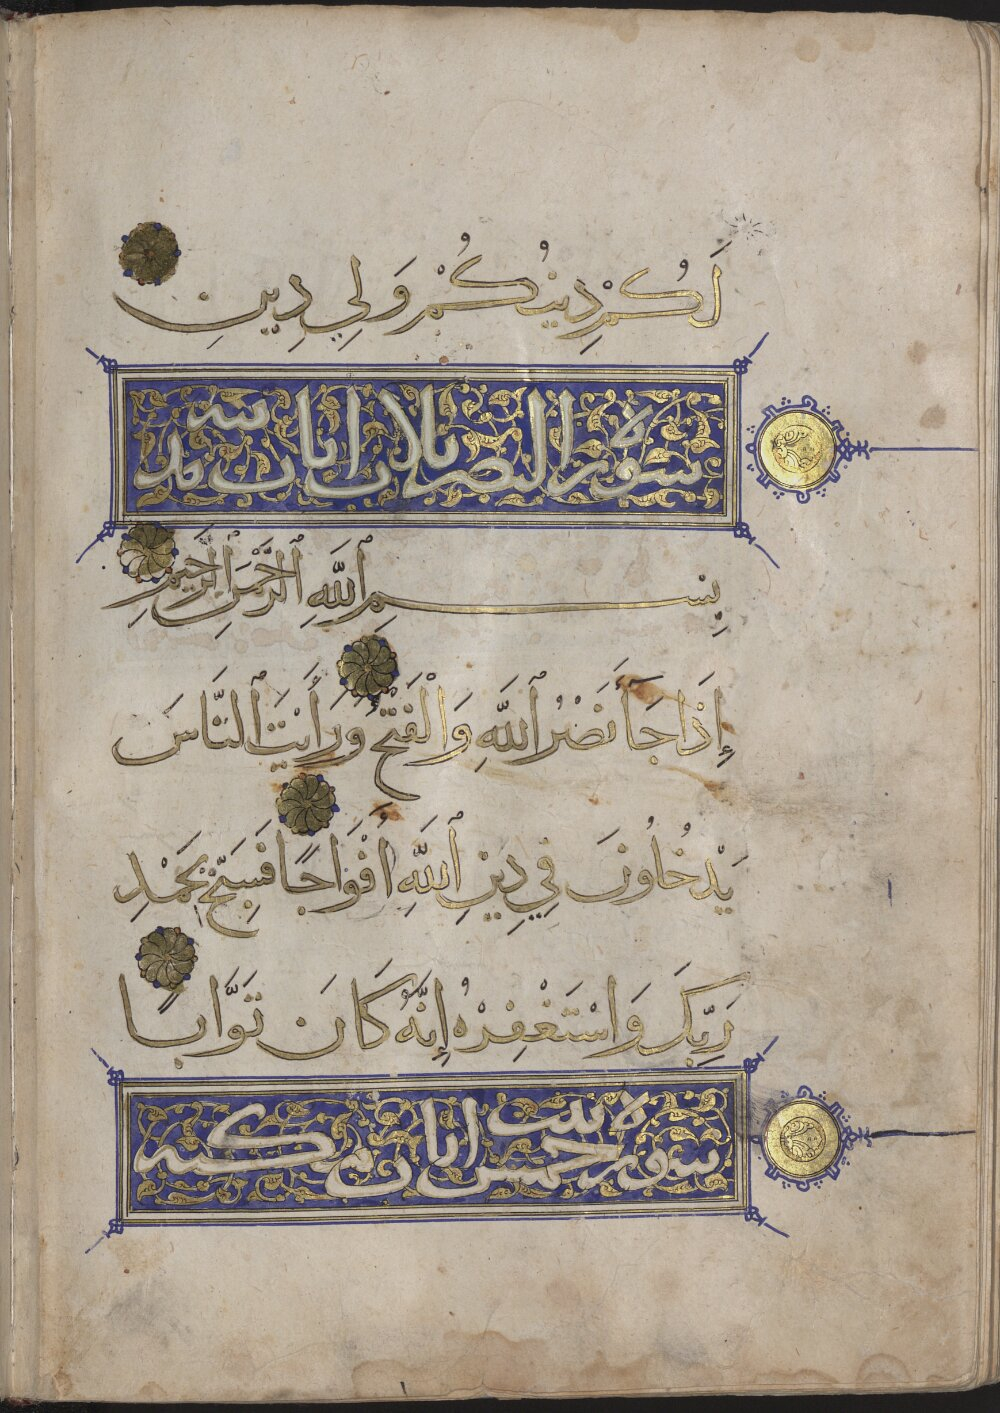 لَكُمْ دِينُكُمْ وَلِيَ دِينِ
سورة النصر ثلاث ايات مدنية
بِسْمِ ٱللَّهِ ٱلرَّحْمَٰنِ ٱلرَّحِيمِ
إِذَا جَآ نَصْرُ ٱللَّهِ وَالْفَتْحُ وَرَأَيْتَ ٱلنَّاسَ
يَدْخُلُونَ فِي دِينِ ٱللَّهِ أَفْوَاجًا فَسَبِّحْ بِحَمْدِ
رَبِّكَ وَاسْتَغْفِرْهُ إِنَّهُ كَانَ تَوَّابًا
سورة تبت خمس ايات مكية